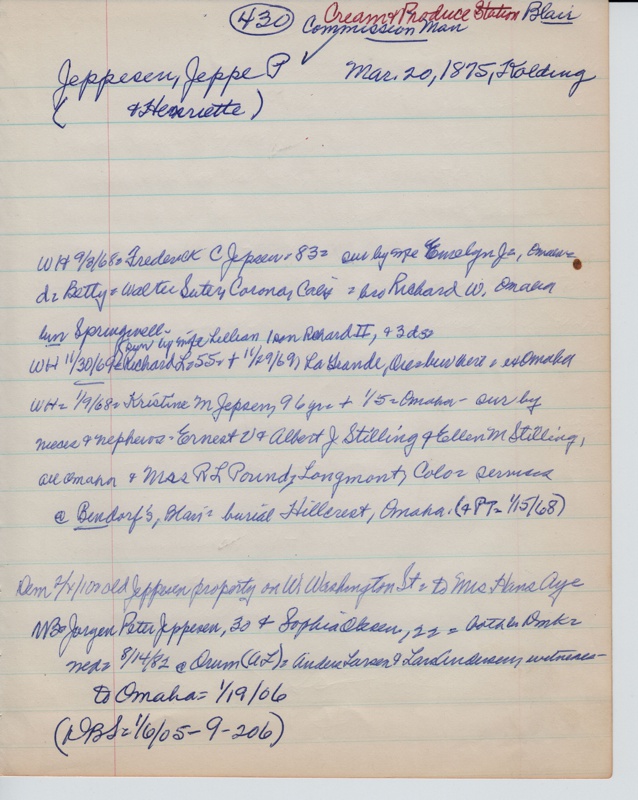 430 Cream & Produce Station Blair
Commission Man
Jeppesen, Jeppe P Mar. 20, 1875, Kolding
( & Henriette )
WH 9/3/68 = Frederick C Jepsen = 83 = sur by wife Emelyn Jn, Omaha =
d = Betty = Walter Suter, Corona, Calif = bro Richard W, Omaha
bur Springwell -
(sur by wife Lillian, 1 son Richard II, & 3 ds =
WH 11/30/69 = Richard L = 55 = + 11/29/69, La Grande, Ore = bur there = ex Omaha
WH = 1/9/68 = Kristine M Jepsen, 96 yrs = + 1/5 = Omaha - sur by
nieces & nephews = Ernest V & Albert J. Stilling & Ellen M Stilling,
all Omaha & Mrs R L Pound, Longmont, Colo = services
@ Bendorf's, Blair = burial Hillcrest, Omaha. (& PT = 1/15/68)
old Jeppesen property on W. Washington St = to Mrs Hans Aye
Jorgen Peter Jeppesen, 30 & Sophia Olesen, 22 = both b Dmk =
med = 8/14/82 @ Orum (AL) = Anders Larsen & Lars Andersen, witnesses -
to Omaha = 1/19/06
(DBS = 1/6/05 - 9 - 206)